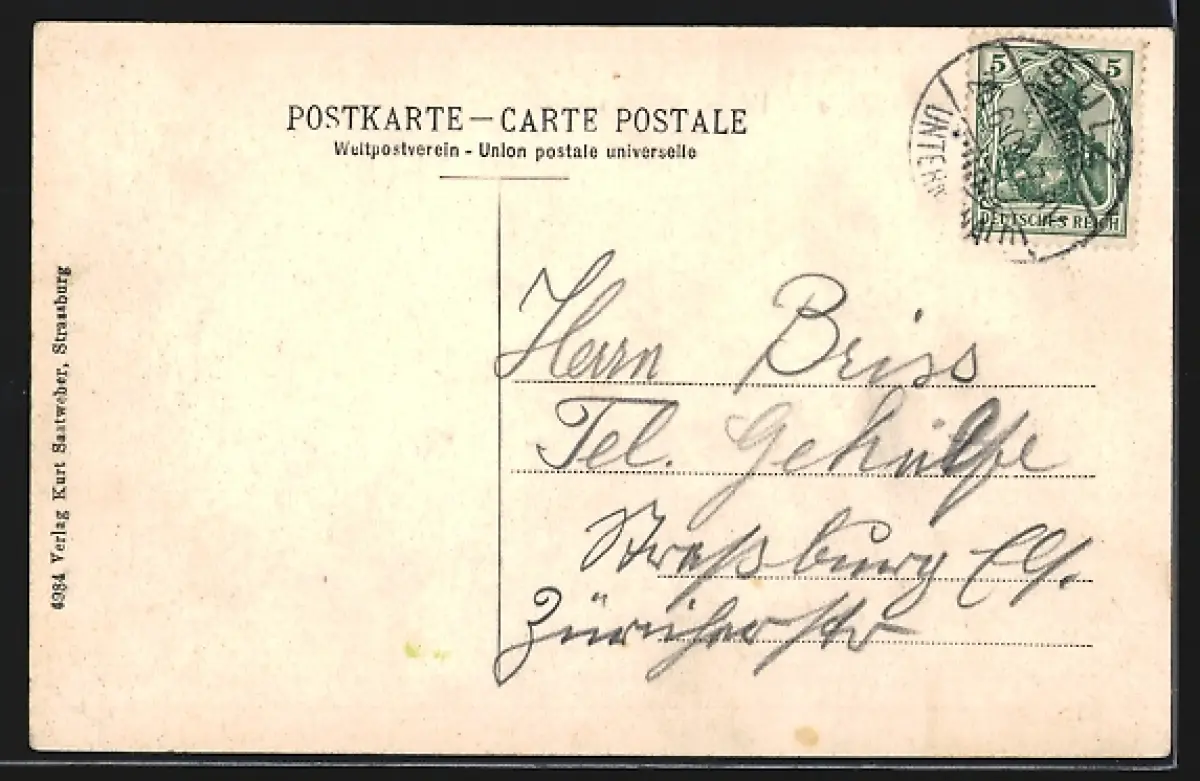 POSTKARTE – CARTE POSTALE
Weltpostverein - Union postale universelle
5 5
DEUTSCHES REICH
SULZ
UNTERN
Herrn Briss
Tel. Gehülfe
Straßburg Els.
Züricherstr
4984 Verlag Kurt Saatweber, Strassburg